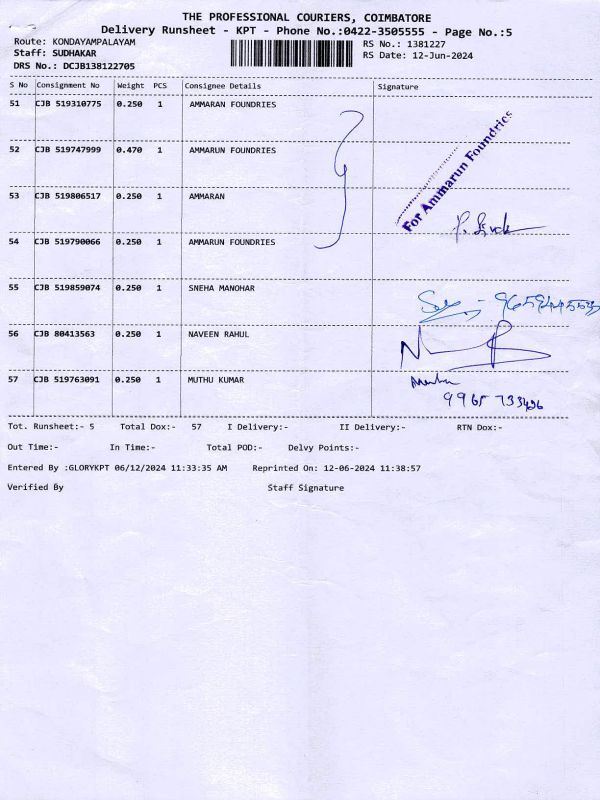 THE PROFESSIONAL COURIERS, COIMBATORE
Delivery Runsheet - KPT - Phone No.:0422-3505555 - Page No.:5
Route: KONDAYAMPALAYAM
RS No.: 1381227
Staff: SUDHAKAR
RS Date: 12-Jun-2024
DRS No.: DCJB138122705
S No Consignment No Weight PCS Consignee Details Signature
51 CJB 519310775 0.250 1 AMMARAN FOUNDRIES
52 CJB 519747999 0.470 1 AMMARUN FOUNDRIES
For Ammarun Foundries
53 CJB 519806517 0.250 1 AMMARAN
54 CJB 519790066 0.250 1 AMMARUN FOUNDRIES
55 CJB 519859074 0.250 1 SNEHA MANOHAR
56 CJB 80413563 0.250 1 NAVEEN RAHUL
57 CJB 519763091 0.250 1 MUTHU KUMAR
Tot. Runsheet:- 5 Total Dox:- 57 I Delivery:- II Delivery:- RTN Dox:-
Out Time:- In Time:- Total POD:- Delvy Points:-
Entered By :GLORYKPT 06/12/2024 11:33:35 AM Reprinted On: 12-06-2024 11:38:57
Verified By Staff Signature